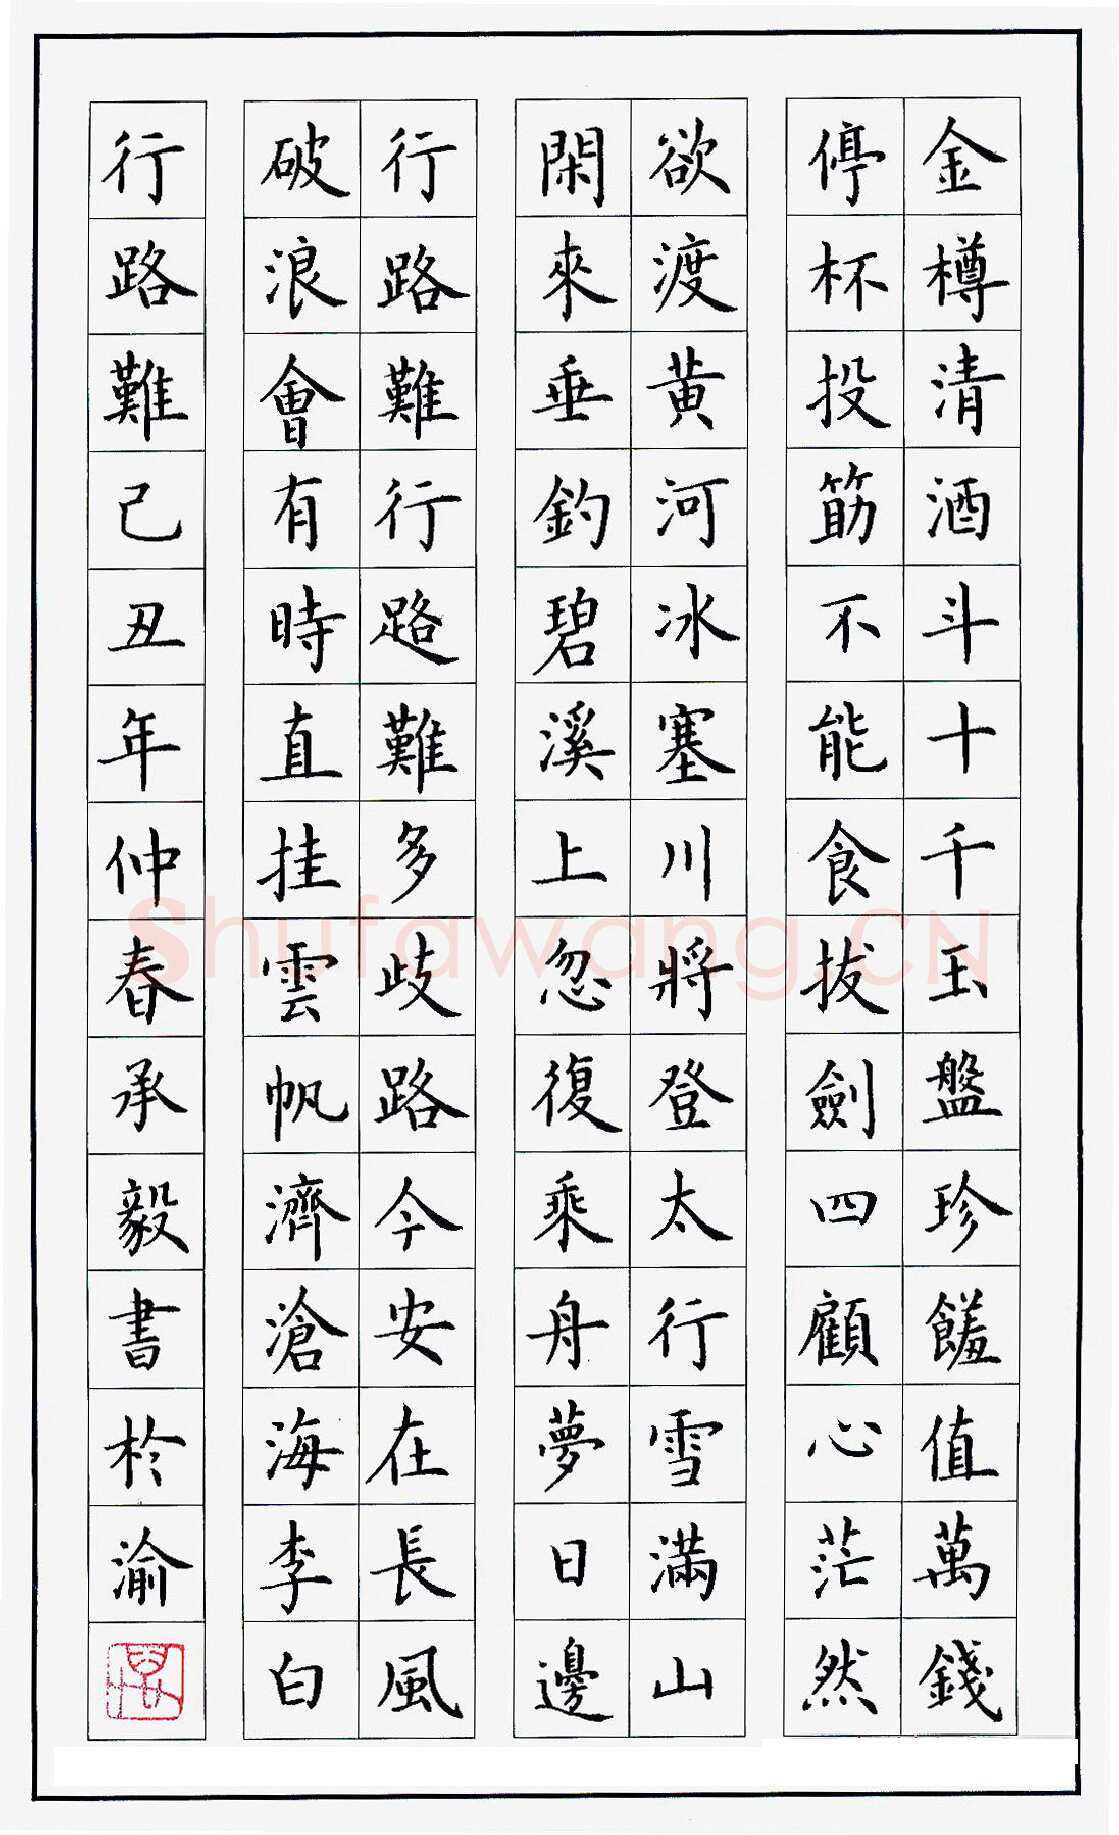 金樽清酒斗十千玉盤珍饈值萬錢
停杯投筯不能食拔劍四顧心茫然
欲渡黄河冰塞川將登太行雪滿山
閑來垂釣碧溪上忽復乘舟夢日邊
行路難行路難多歧路今安在長風
破浪會有時直挂雲帆濟滄海李白
行路難己丑年仲春承毅書於渝
Shufawang.CN